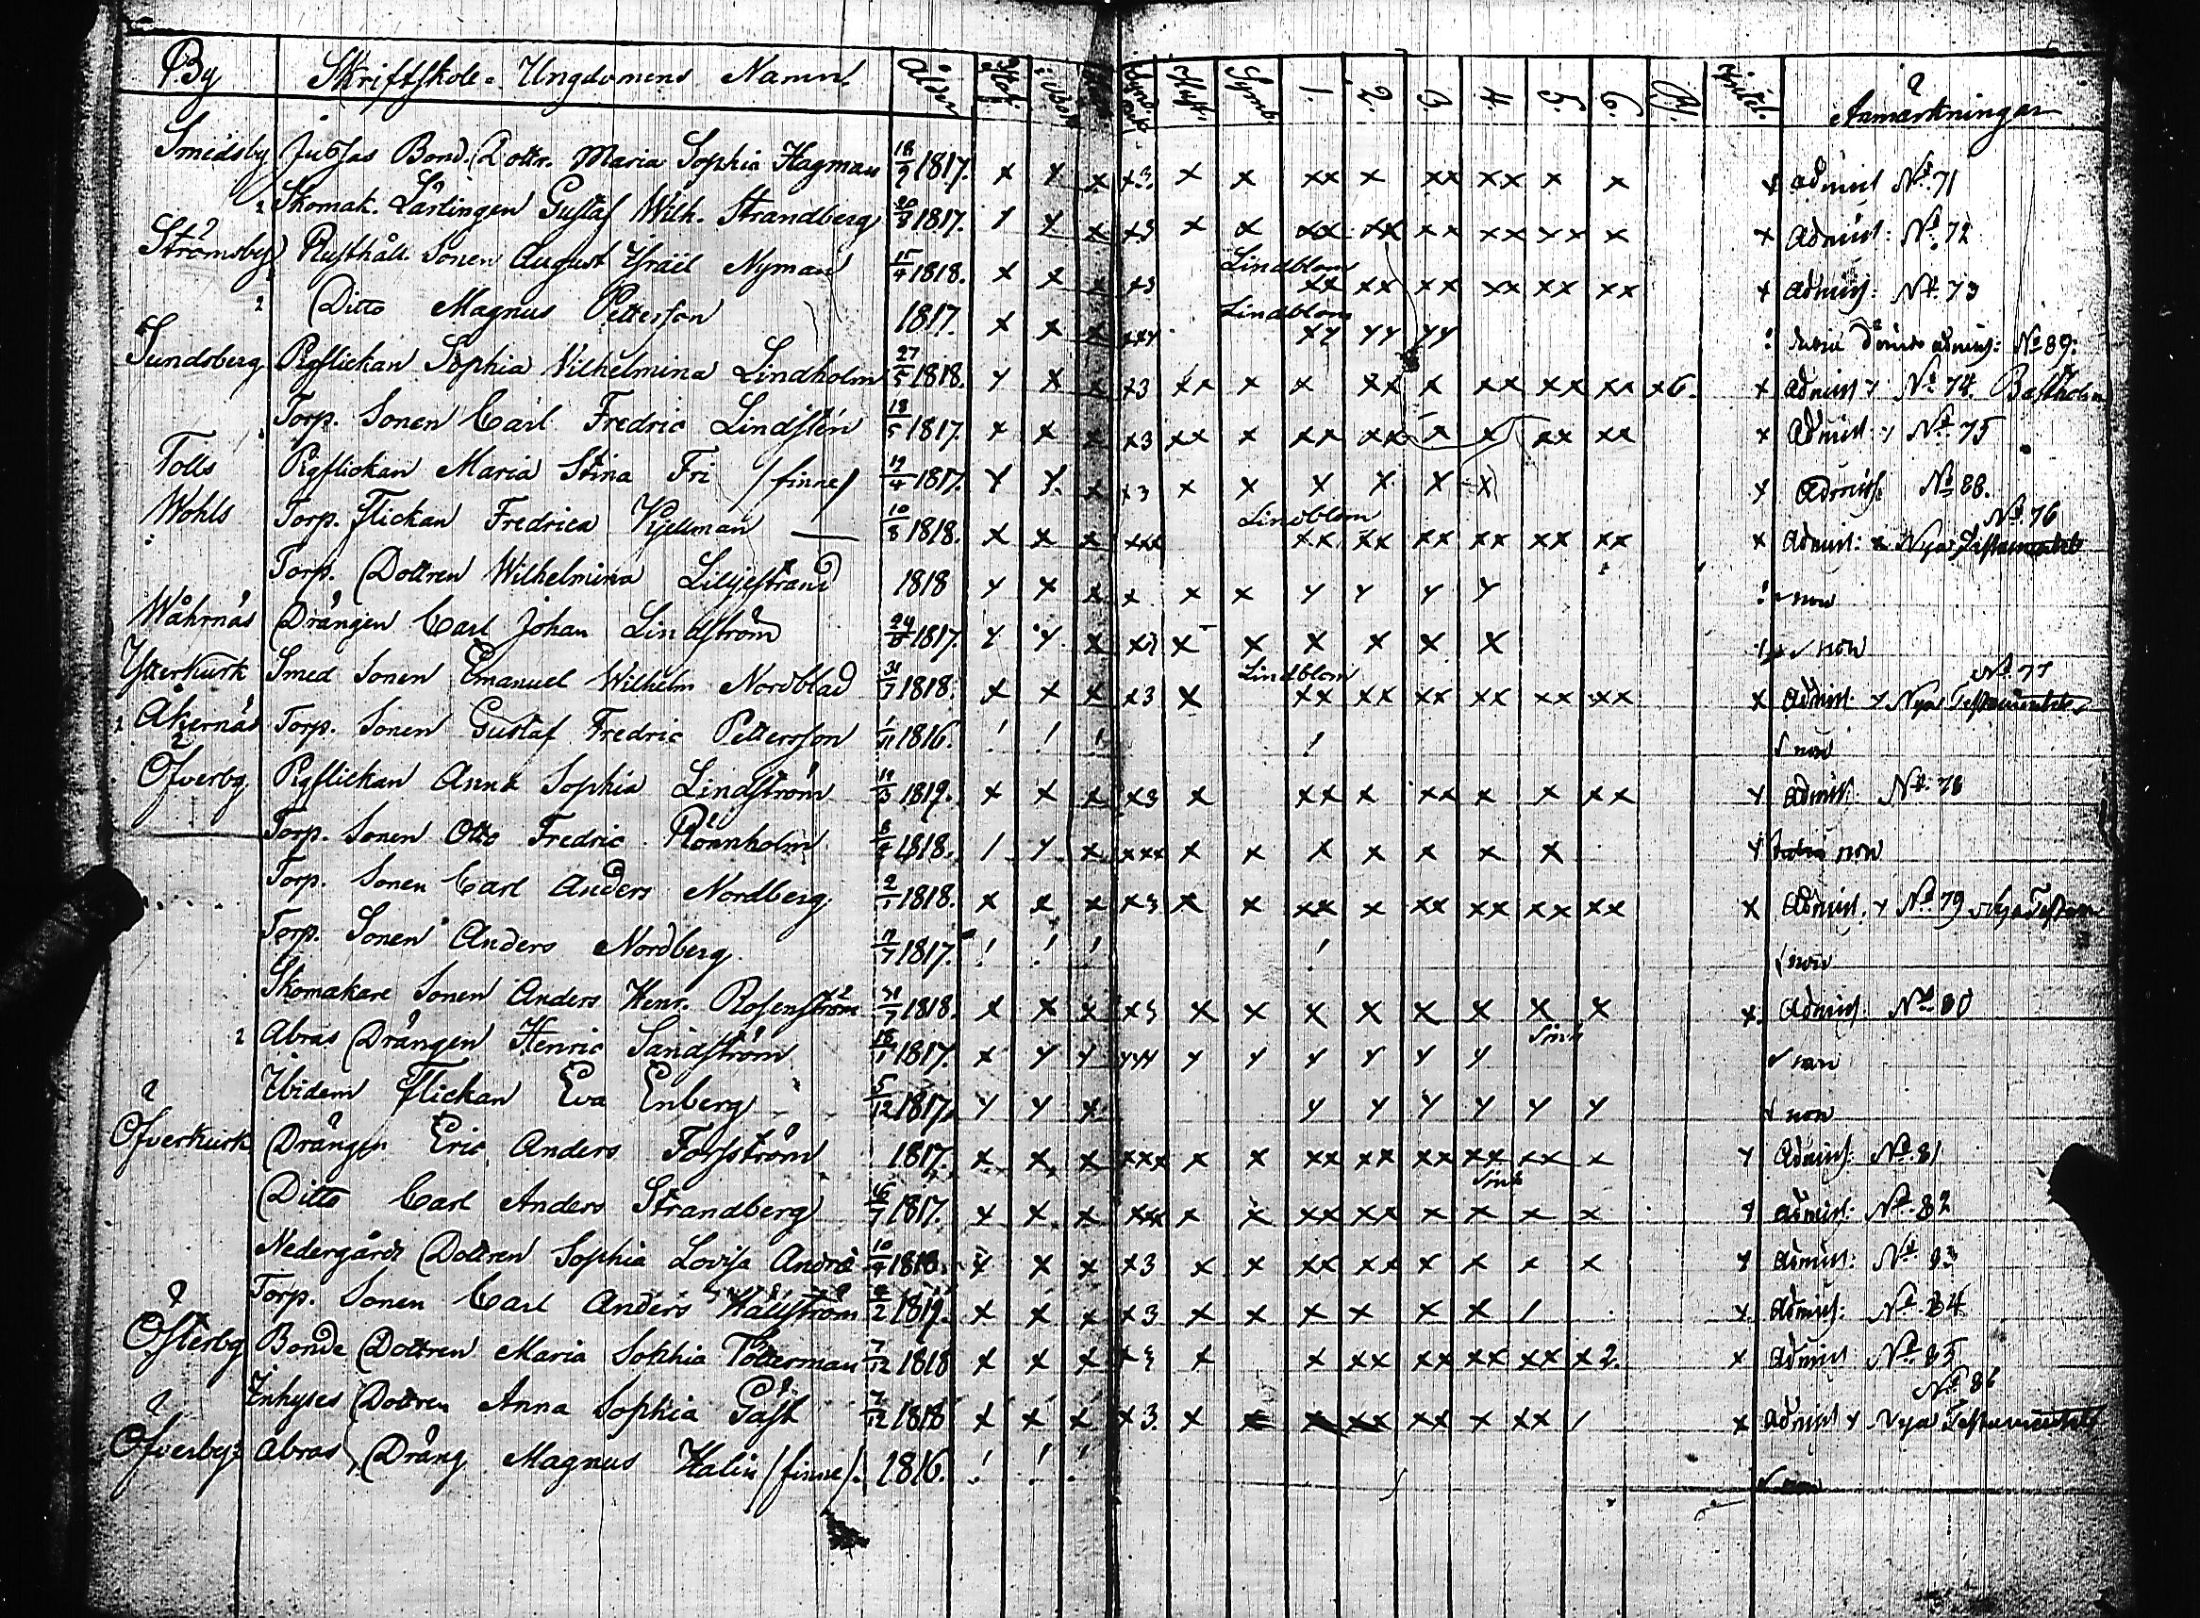 By Skriftskole-Ungdomens Namn. Ålder Symb. 1. 2. 3. 4. 5. 6. Anmärkningar
Smedsby Jubjas Bond. Dottr. Maria Sophia Hagman 18/9 1817. x y x x3. x x xx x xx xx x x x Admiss No 71
Skomak. Lärlingen Gustaf Wilh. Strandberg 20/8 1817. y y x x3 x x xx xx xx xx xx x x Admiss: No 72
Strömsby Rusthåll. Sonen August Israel Nyman 15/4 1818. x x x x3 Lindblom xx xx xx xx xx xx x Admiss: No 73
Ditto Magnus Petterson 1817. x x x xxy Lindblom xy yy yy admiss: No 89.
Sundsberg Pigflickan Sophia Vilhelmina Lindholm 27/5 1818. y x x x3 xx x x xx x xx xx xx x6. x Admiss No 74. Bastholm
Torp. Sonen Carl Fredric Lindstén 18/5 1817. x x x x3 xx x xx xx x x xx xx x Admiss No 75
Tolls Pigflickan Maria Stina Fri /finne/ 19/4 1817. y y. x x3 x x x x x x y Admiss No 88.
Wohls Torp. Flickan Fredrica Kjellman 10/8 1818. x x x xxx Lindblom xx xx xx xx xx xx x Admiss: Nya Testamentet No 76
Torp. Dottren Wilhelmina Liljestrand 1818 y x x x x x y y y y non
Wåhrnäs Drängen Carl Johan Lindström 1817. y y x x3 x x x x x x non
Ytterkurk Smed Sonen Emanuel Wilhelm Nordblad 31/7 1818. x x x x3 x Lindblom xx xx xx xx xx xx x Admiss Nya Testamentet No 77
Åkernäs Torp. Sonen Gustaf Fredric Petterson 1/11 1816. ! ! ! ! non
Öfverby Pigflickan Anna Sophia Lindström 19/3 1819. x x x x3 x xx x xx x x xx y Admiss: No 78
Torp. Sonen Otto Fredric Rönnholm 1818. / y x xxx x x x x x x x y non
Torp. Sonen Carl Anders Nordberg 2/1 1818. x x x x3 x x xx x xx xx xx xx x Admiss. No 79
Torp. Sonen Anders Nordberg 1817. ! ! ! ! non
Skomakare Sonen Anders Henr. Rosenström 31/7 1818. x x x x3 x x x x x x x x x. Admiss No 80
Abras Drängen Henric Sandström 18/1 1817. x y y yyy y y y y y y non
Ibidem Flickan Eva Enberg 5/12 1817. y y x y y y y y y non
Öfverkurk Drängen Eric Anders Forsström 1817. x x x xxx x x xx xx xx xx xx x y Admiss: No 81
Ditto Carl Anders Strandberg 16/7 1817. y x x xxx x x xx xx x x x x y Admiss: No 82
Nedergårdz Dottren Sophia Lovisa Andrée 10/9 1818. y x x x3 x x xx xx x x x x y Admiss: No 83
Torp. Sonen Carl Anders Hällström 1819. x x x x3 x x x x x x / x Admiss: No 84
Österby Bonde Dottren Maria Sophia Tötterman 7/12 1818 x x x x3 x x xx xx xx xx x2. x Admiss No 85
Inhyses Dottren Anna Sophia Gäst 7/12 1818 x x x x3. x x x xx xx x xx / x Admiss Nya Testamentet No 86
Öfverby Abras Dräng Magnus Halin /finne/. 1816. ! ! ! non